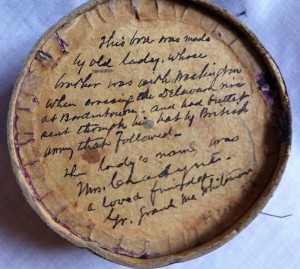 This box was made
by old lady, whose
brother was with Washington
when crossing the Delaware river
at Bordentown. and had bullet
sent through his hat by British
army that followed.
The lady's name was
Mrs.
a loved friend of
Gr. Grand Ma